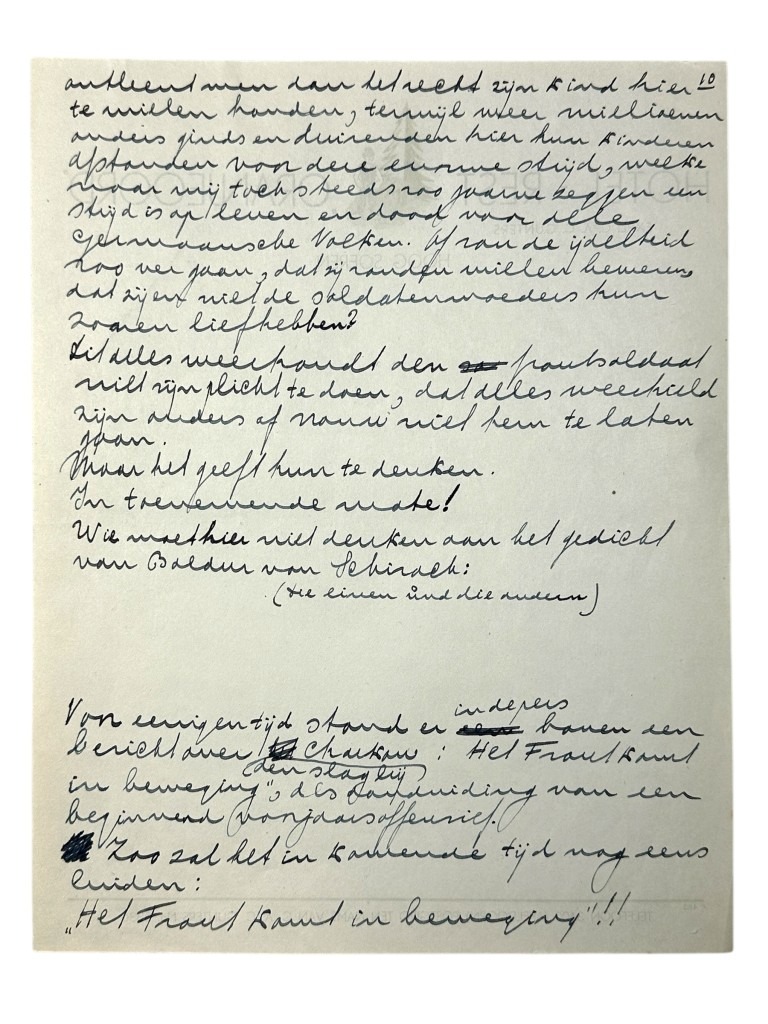 10
ontleent men dan het recht zijn kind hier
te willen houden, terwijl weer millioenen
ouders ginds en duizenden hier hun kinderen
afstonden voor deze enorme strijd, welke
naar wij toch steeds zoo gaarne zeggen een
strijd is op leven en dood voor alle
Germaansche Volken. Of zou de ijdelheid
zoo ver gaan, dat zij zouden willen beweren,
dat zijen niet de soldatenmoeders hun
zonen liefhebben?
Dit alles weerhoudt den frontsoldaat
niet zijn plicht te doen, dat alles weerhield
zijn ouders of vrouw niet hem te laten
gaan.
Maar het geeft hun te denken.
In toenemende mate!
Wie moet hier niet denken aan het gedicht
van Baldur von Schirach:
(Die einen und die andern)
in de pers
Voor eenigen tijd stond er boven een
bericht over Charkow: Het Front komt
den slag bij
in beweging", als aanduiding van een
beginnend voorjaarsoffensief.
Zoo zal het in komende tijd nog eens
luiden:
„Het Front komt in beweging"!!